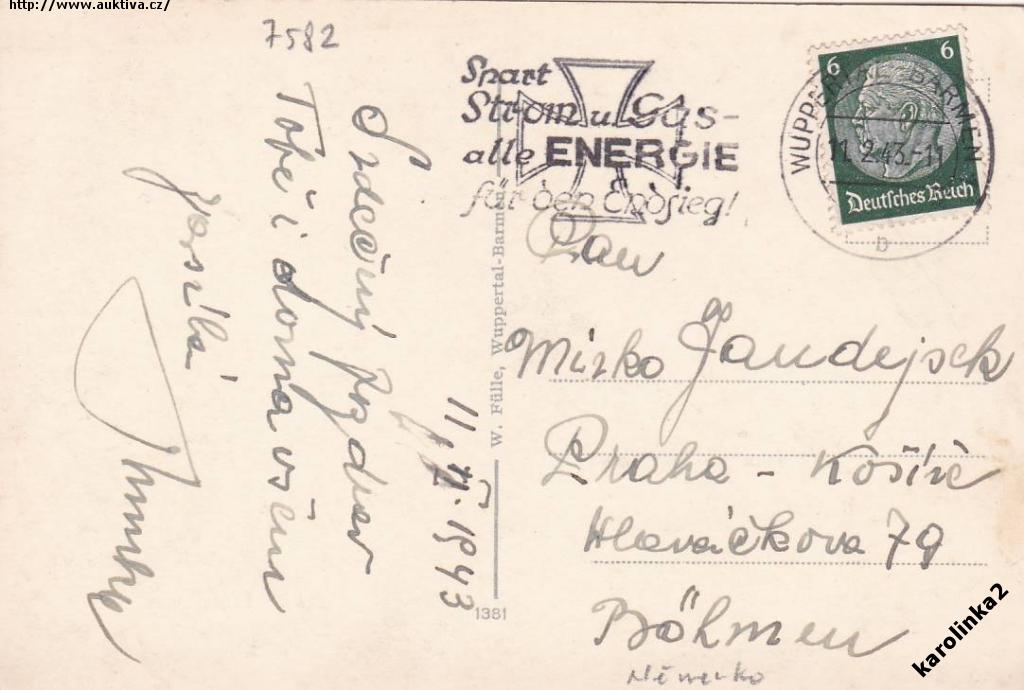 http://www.auktiva.cz/
7582
Spart
Strom u. Gas-
alle ENERGIE
für den Endsieg!
WUPPERTAL-BARMEN
11.2.43.-11
D
6 6
Deutsches Reich
Srdečný pozdrav
Tobě i doma všem
posílá
11. II. 1943
W. Fülle, Wuppertal-Barmen
1381
Pan
Mirko Jandejsek
Praha - Košíře
Hlaváčkova 79
Böhmen
Německo
karolinka2